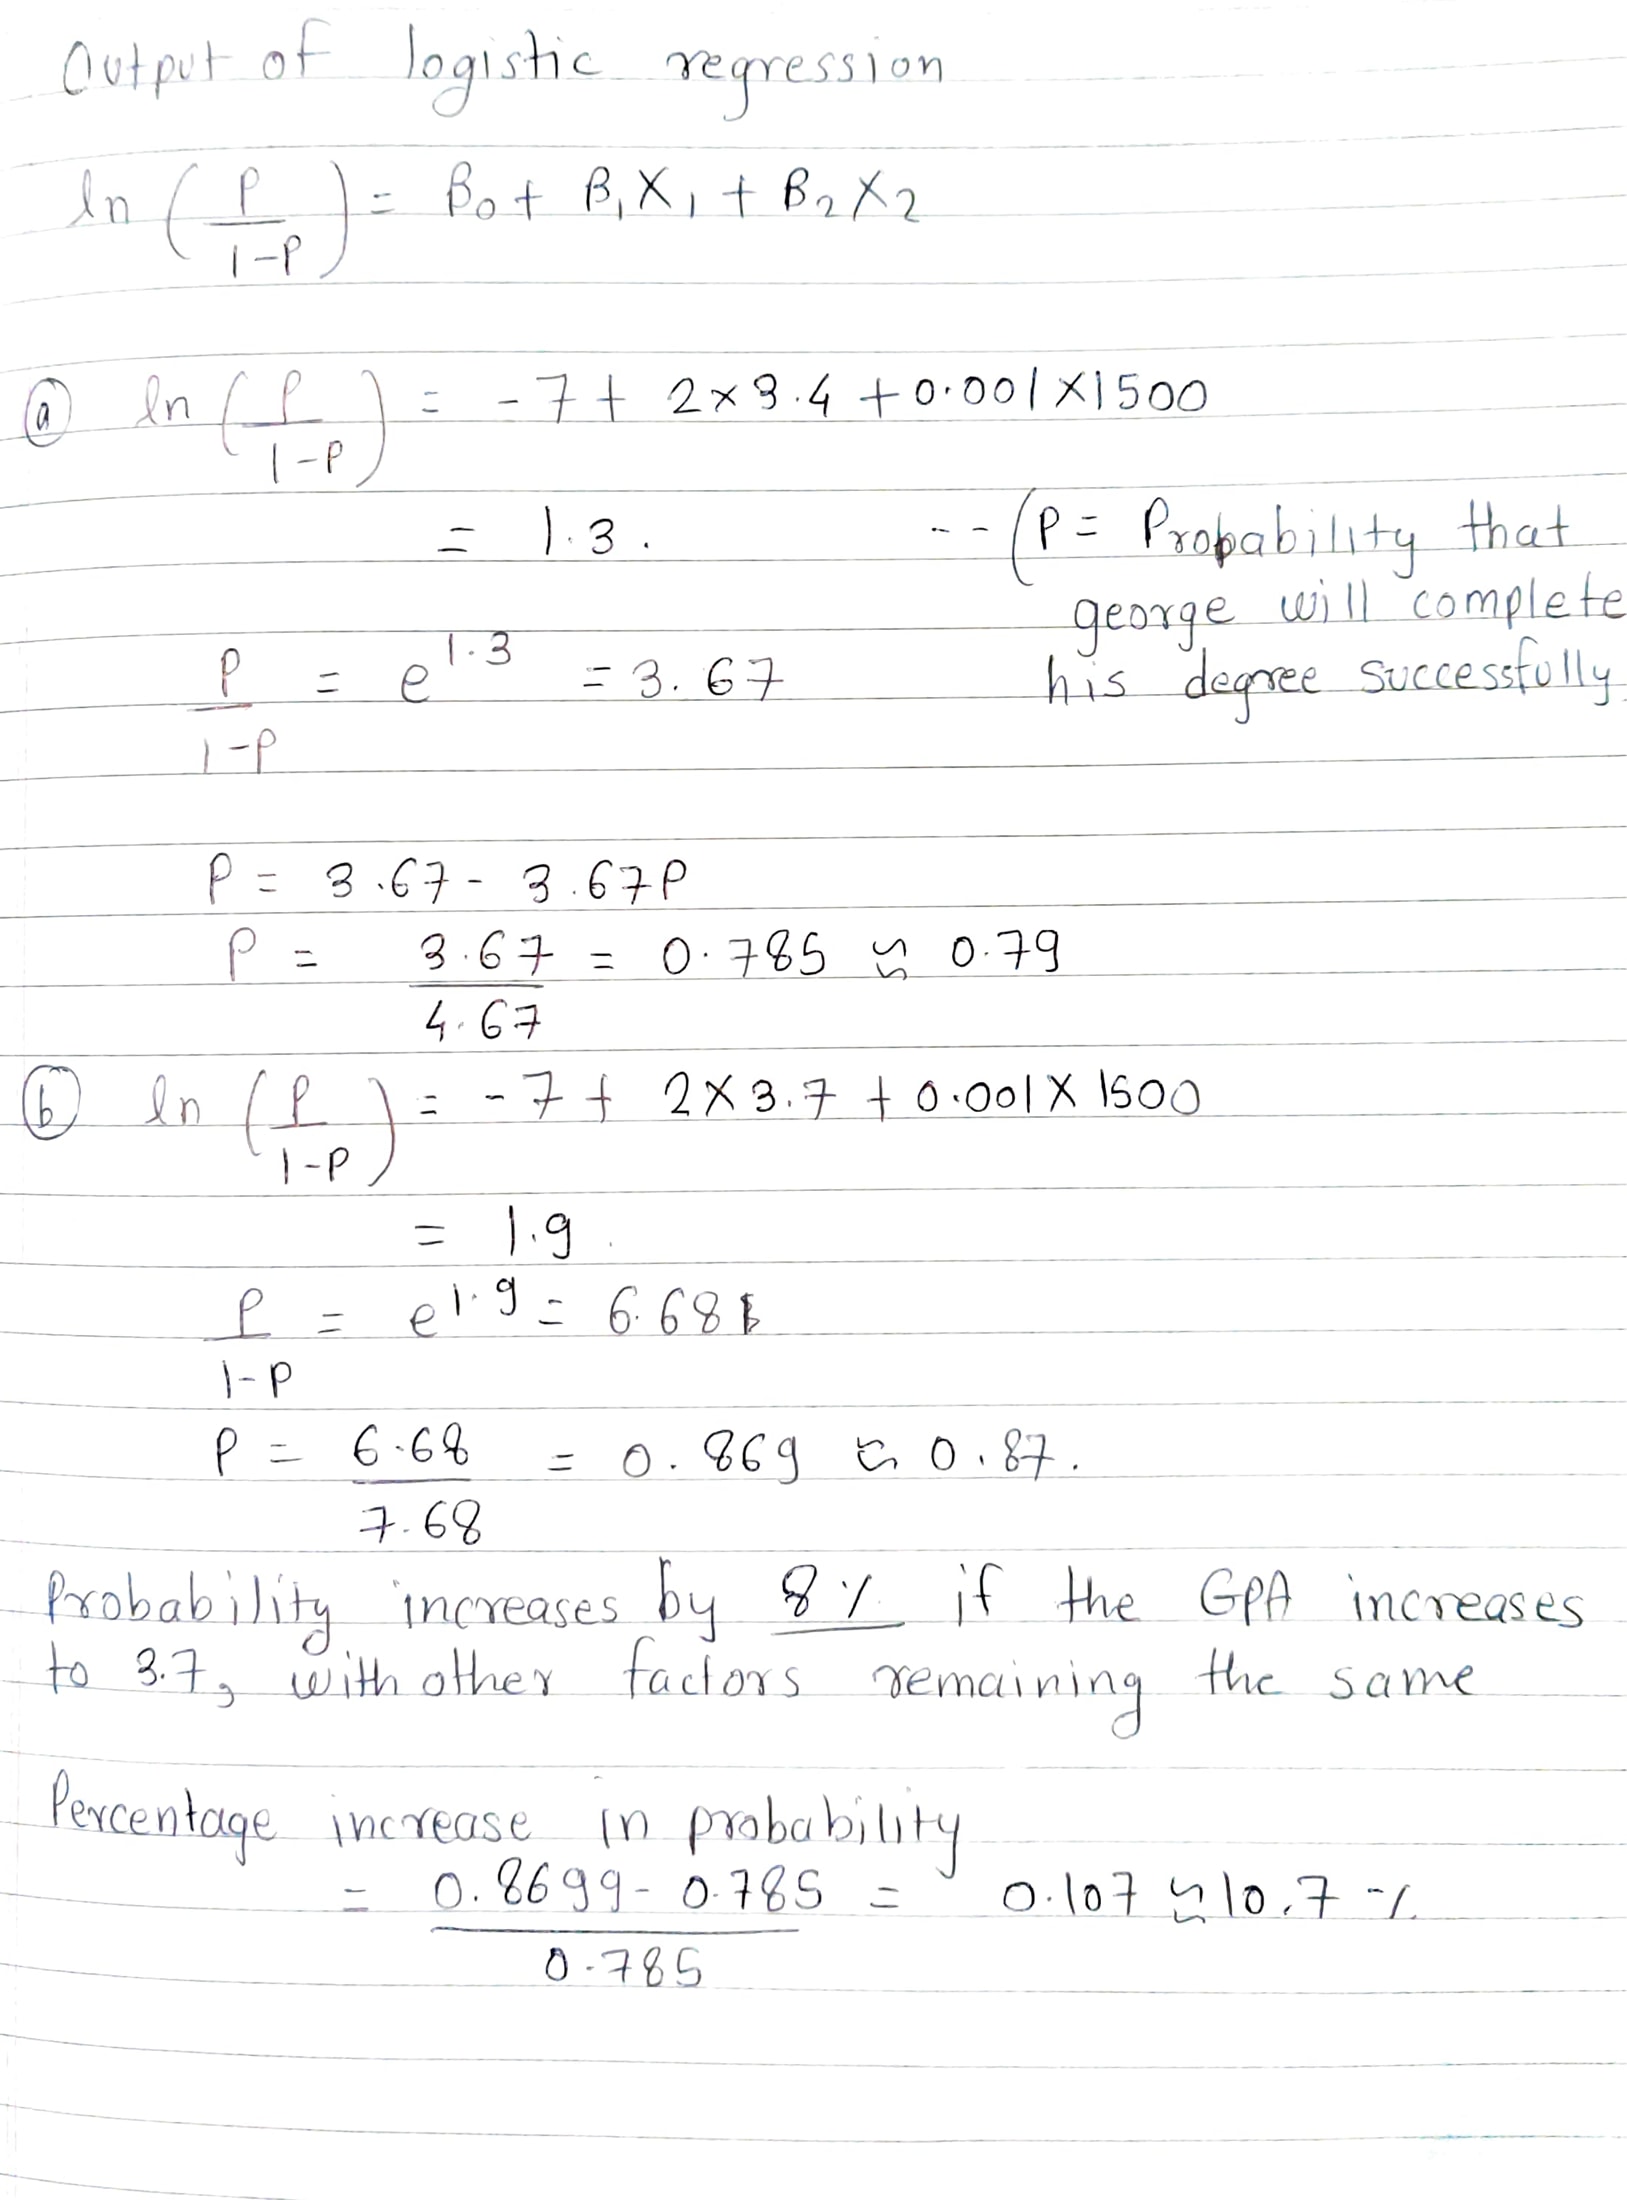 Output of logistic regression
ln (P/1-P) = β₀ + β₁X₁ + β₂X₂
ⓐ ln (P/1-P) = -7 + 2×3.4 + 0.001×1500
= 1.3. -- (P = Probability that
george will complete
his degree successfully
P/1-P = e^1.3 = 3.67
P = 3.67 - 3.67P
P = 3.67/4.67 = 0.785 ≈ 0.79
ⓑ ln (P/1-P) = -7 + 2×3.7 + 0.001×1500
= 1.9
P/1-P = e^1.9 = 6.68
P = 6.68/7.68 = 0.869 ≈ 0.87.
Probability increases by 8% if the GPA increases
to 3.7, with other factors remaining the same
Percentage increase in probability
= 0.8699-0.785/0.785 = 0.107 ≈ 10.7 %